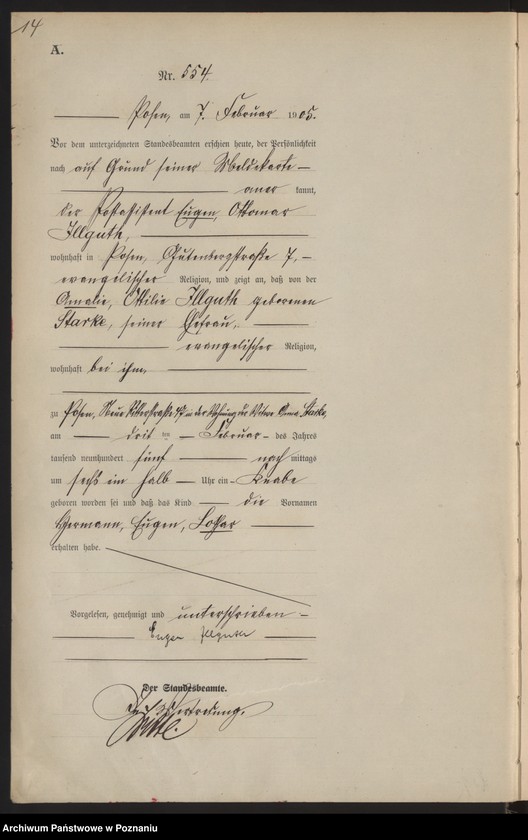 14
A.
Nr. 554.
Posen, am 7. Februar 1905.
Vor dem unterzeichneten Standesbeamten erschien heute, der Persönlichkeit
nach auf Grund seiner Meldekarte
aner kannt,
der Postassistent Eugen, Ottomar
Illguth,
wohnhaft in Posen, Gutenbergstraße 7,
evangelischer Religion, und zeigt an, daß von der
Amalie, Ottilie Illguth geborenen
Starke, seiner Ehefrau,
evangelischer Religion,
wohnhaft bei ihm,
zu Posen, Neue Ritterstraße in der Wohnung der Witwe Starke,
am drit ten Februar des Jahres
tausend neunhundert fünf nach mittags
um sechs ein halb Uhr ein Knabe
geboren worden sei und daß das Kind die Vornamen
Hermann, Eugen, Lothar
erhalten habe.
Vorgelesen, genehmigt und unterschrieben
Eugen Illguth
Der Standesbeamte.
In Vertretung.
Archiwum Państwowe w Poznaniu